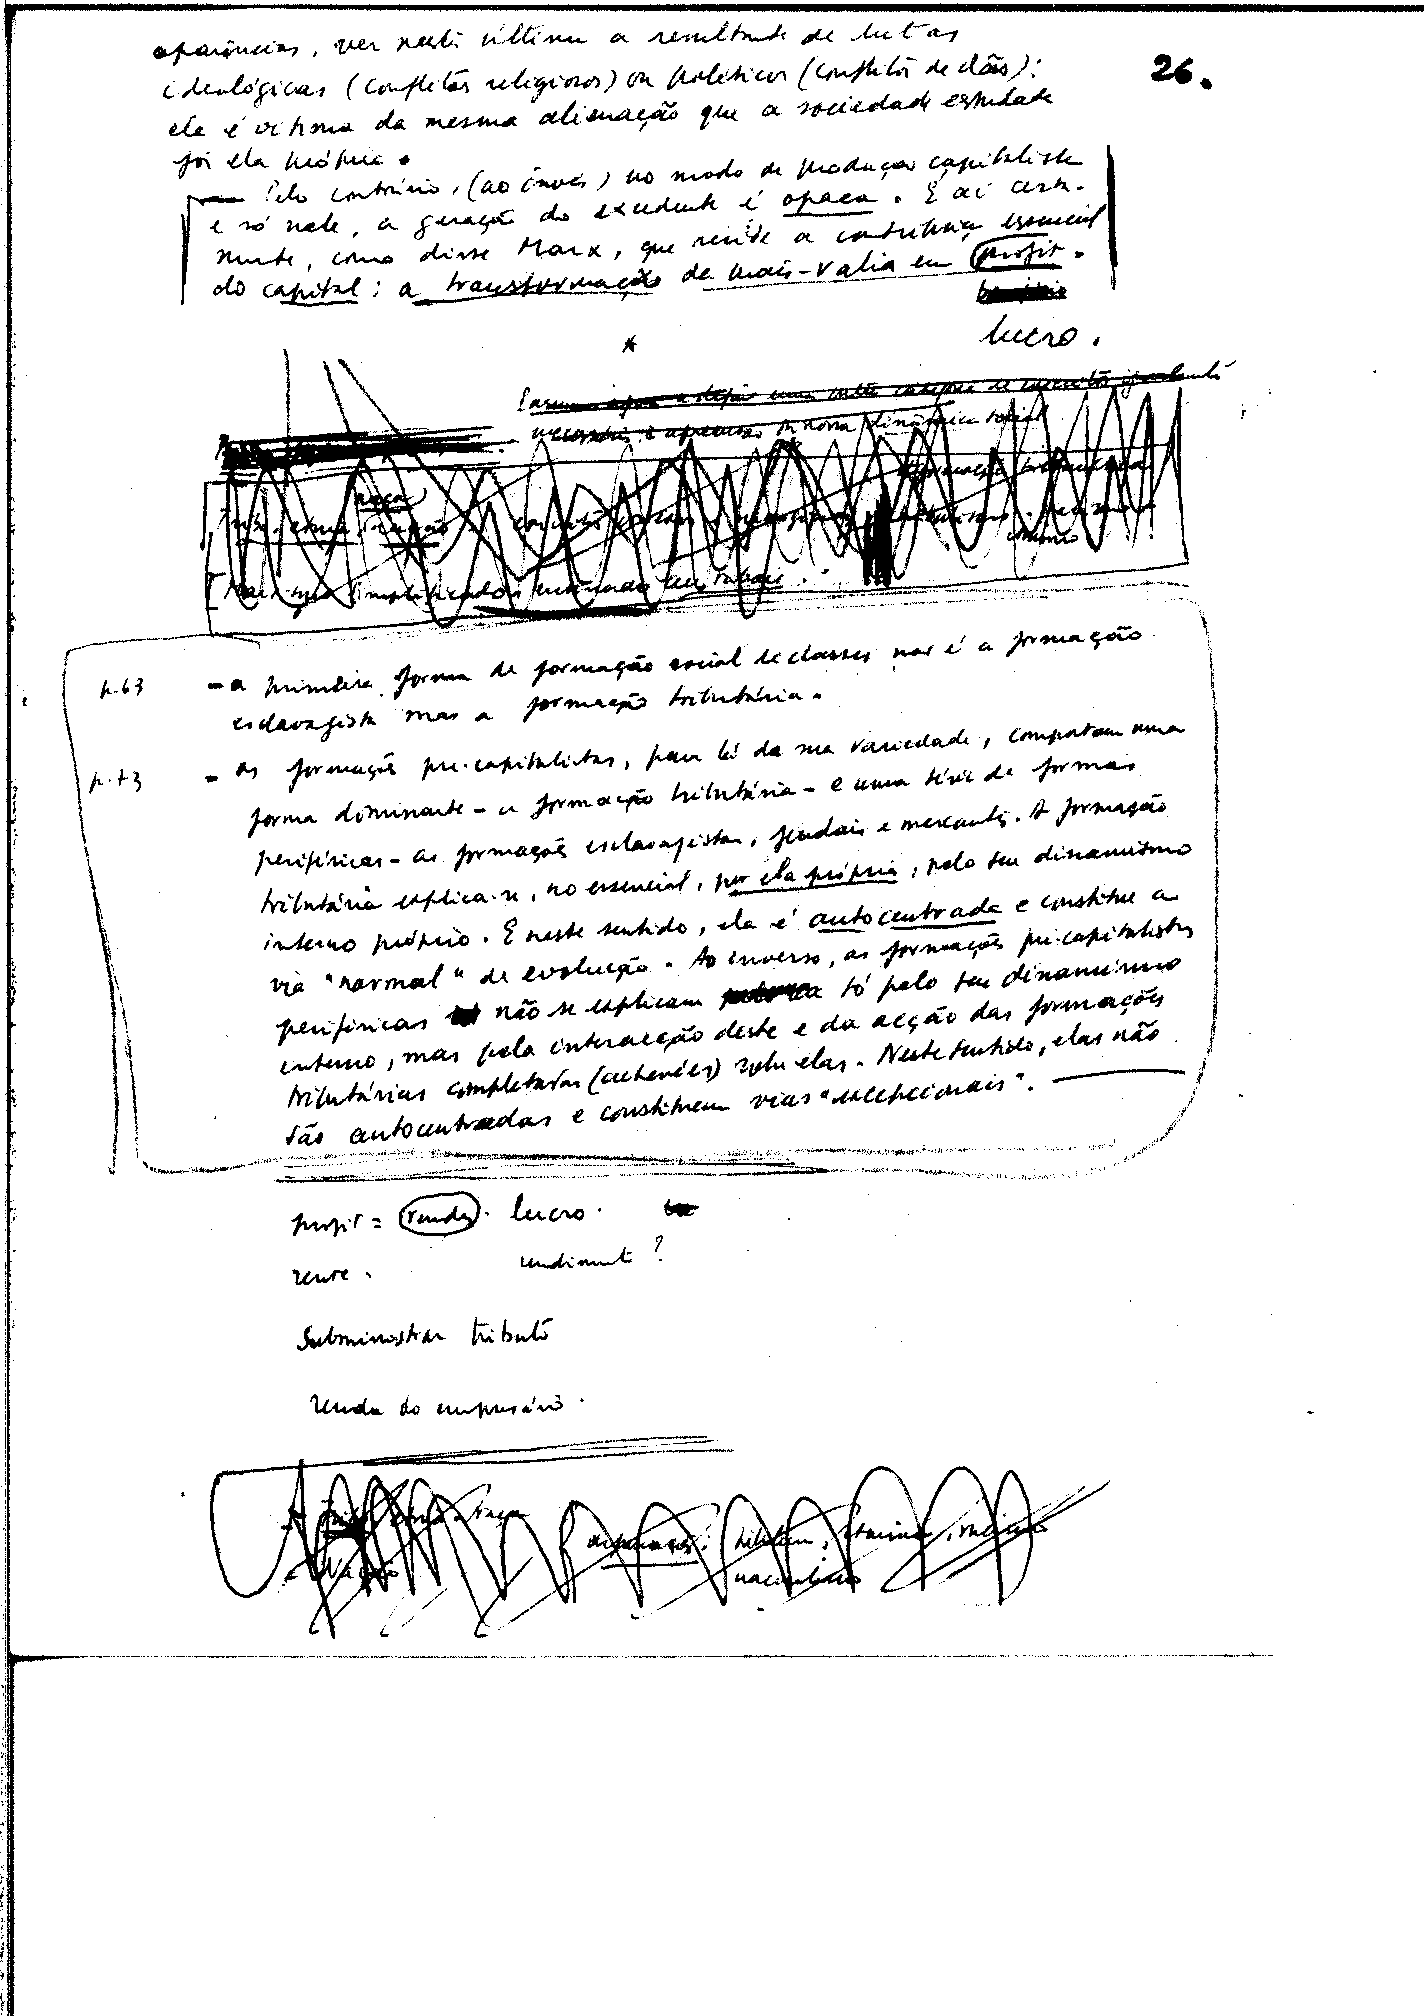 aparências, ver neste último a resultante de lutas
ideológicas (conflitos religiosos) ou políticos (conflitos de clãs):
ele é vítima da mesma alienação que a sociedade estudada
foi ela própria.
26.
— Pelo contrário, (ao invés) no modo de produção capitalista
e só nele, a geração do excedente é opaca. E aí certa-
mente, como disse Marx, que reside a contribuição essencial
do capital: a transformação de mais-valia em profit.
lucro.
*
p. 63 - a primeira forma de formação social de classes não é a formação
esclavagista mas a formação tributária.
p. 73 - as formações pre-capitalistas, para lá da sua variedade, comportam uma
forma dominante - a formação tributária - e uma série de formas
periféricas - as formações esclavagistas, feudais e mercantis. A formação
tributária explica-se, no essencial, por ela própria, pelo seu dinamismo
interno próprio. E neste sentido, ela é autocentrada e constitue a
via "normal" de evolução. Ao inverso, as formações pre-capitalistas
periféricas não se explicam só pelo seu dinamismo
interno, mas pela interacção deste e da acção das formações
tributárias completadas (achevées) sobre elas. Neste sentido, elas não
são autocentradas e constituem vias "excepcionais".
profit = renda. lucro.
rente. rendimento?
Subministrar tributo
Renda do empresário.